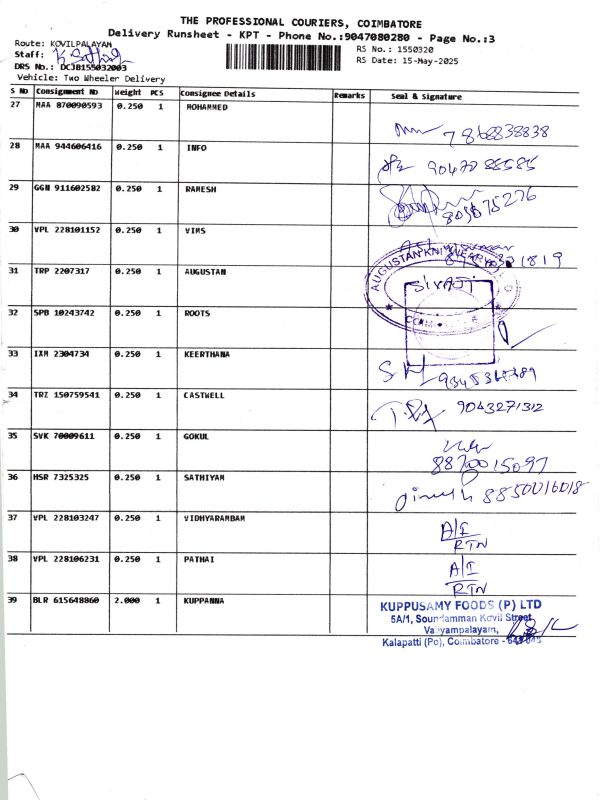 THE PROFESSIONAL COURIERS, COIMBATORE
Delivery Runsheet - KPT - Phone No.:9047080280 - Page No.:3
Route: KOVILPALAYAM RS No.: 1550320
Staff: K
DRS No.: DCJB155032003 RS Date: 15-May-2025
Vehicle: Two Wheeler Delivery
S No Consignment No Weight PCS Consignee Details Remarks Seal & Signature
27 MAA 870090593 0.250 1 MOHAMMED
7868838838
28 MAA 944606416 0.250 1 INFO
29 GGN 911602582 0.250 1 RAMESH
30 VPL 228101152 0.250 1 VIMS
31 TRP 2207317 0.250 1 AUGUSTAN
AUGUSTAN KNITWEAR
SIVAJI
32 SPB 10243742 0.250 1 ROOTS
33 IXM 2304734 0.250 1 KEERTHANA
34 TRZ 150759541 0.250 1 CASTWELL
9043271312
35 SVK 70009611 0.250 1 GOKUL
8870015097
36 HSR 7325325 0.250 1 SATHIYAM
8850016018
37 VPL 228103247 0.250 1 VIDHYARAMBAM
A/I
RTN
38 VPL 228106231 0.250 1 PATHAI
A/I
RTN
39 BLR 615648860 2.000 1 KUPPANNA
KUPPUSAMY FOODS (P) LTD
5A/1, Soundamman Kovil Street,
Valiyampalayam,
Kalapatti (Po), Coimbatore -